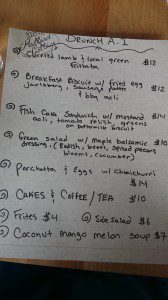 BRUNCH A.1
Espresso lamb & local green frittata $12
Breakfast Biscuit w/ fried egg $12
jarlsberg, sausage pattie
& bbq aoli
Fish Cake Sandwich w/ mustard $14
aoli, tomato relish greens
on buttermilk biscuit
Green salad w/ maple balsamic $10
dressing, (Radish, beets, spiced pecans
blooms, cucumber)
Porchetta & Eggs w/ chimichuri
$14
CAKES & COFFEE/TEA $10
Frites $4 Side Salad $6
Coconut mango melon soup $7